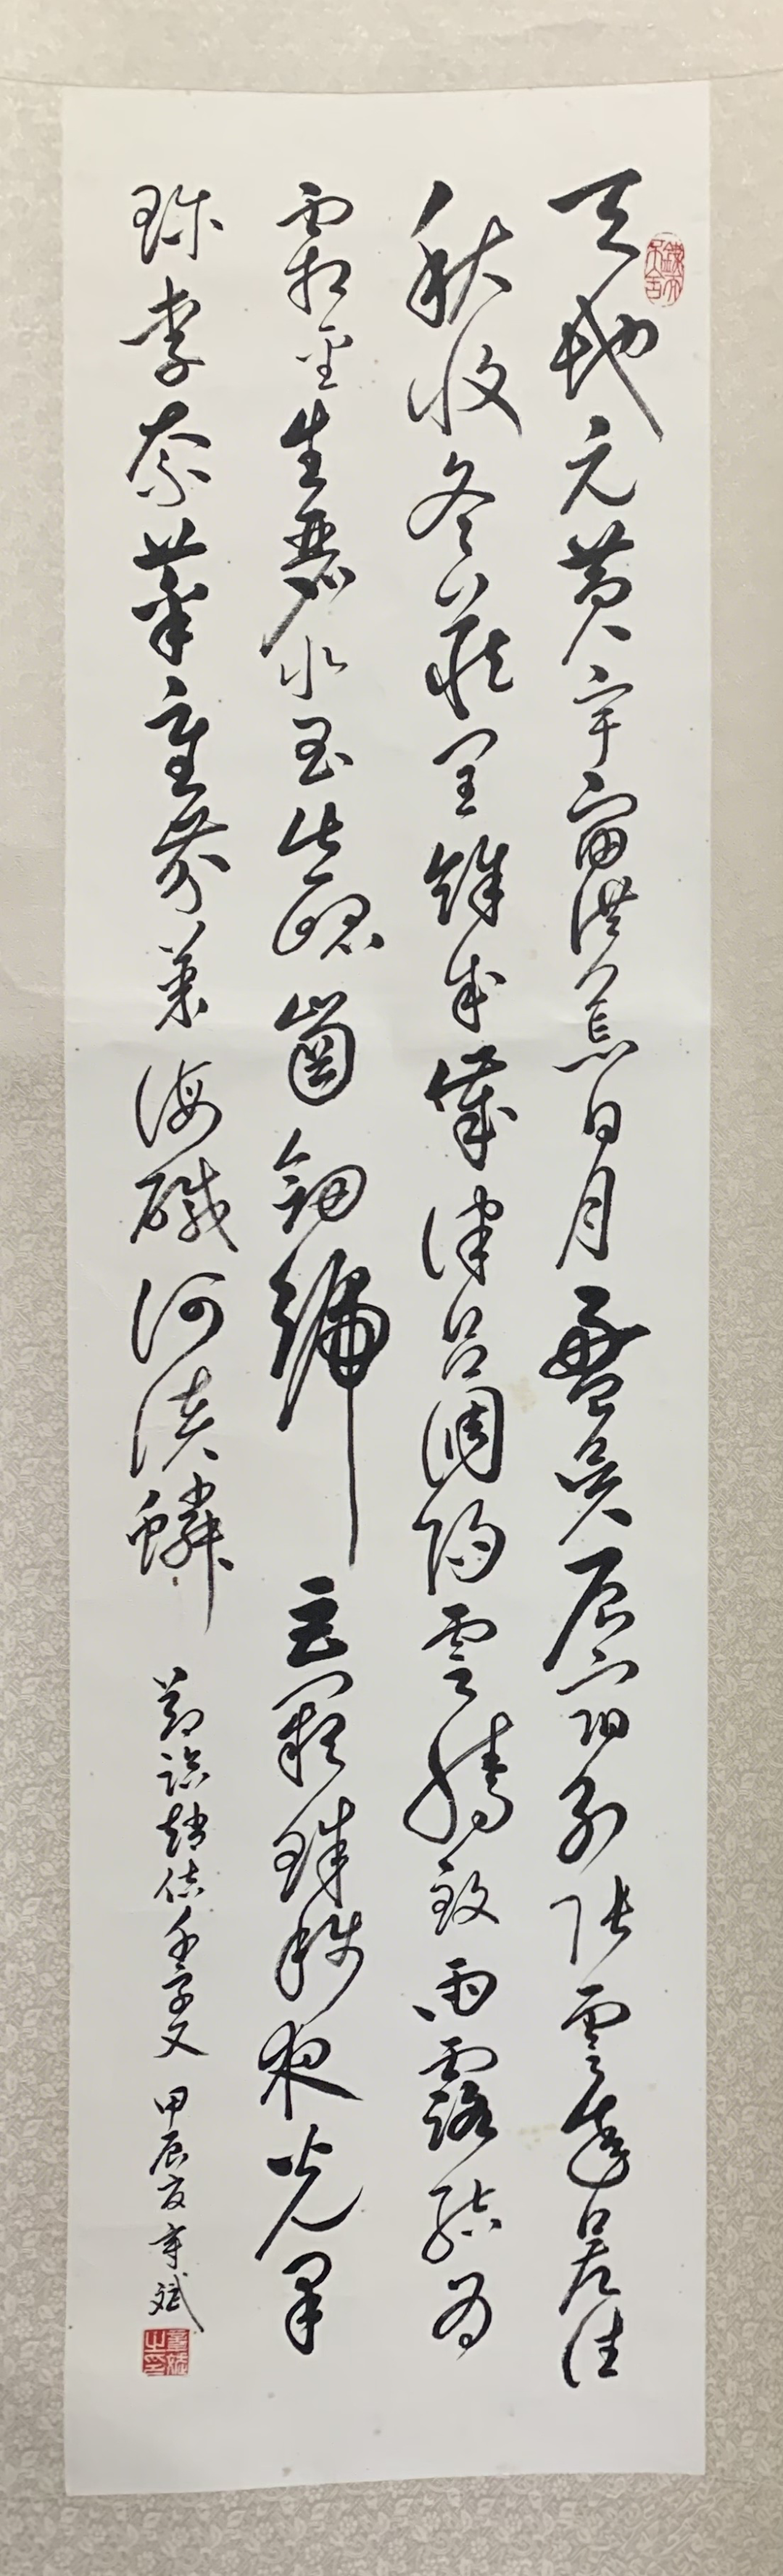 天地元黄宇宙洪荒日月盈昃辰宿列张云腾暑往
秋收冬藏闰余成岁律吕调阳云腾致雨露结为
霜金生丽水玉出崑岗剑号巨阙珠称夜光果
珍李柰菜重芥姜海咸河淡鳞
节临赵佶千字文
甲辰夏